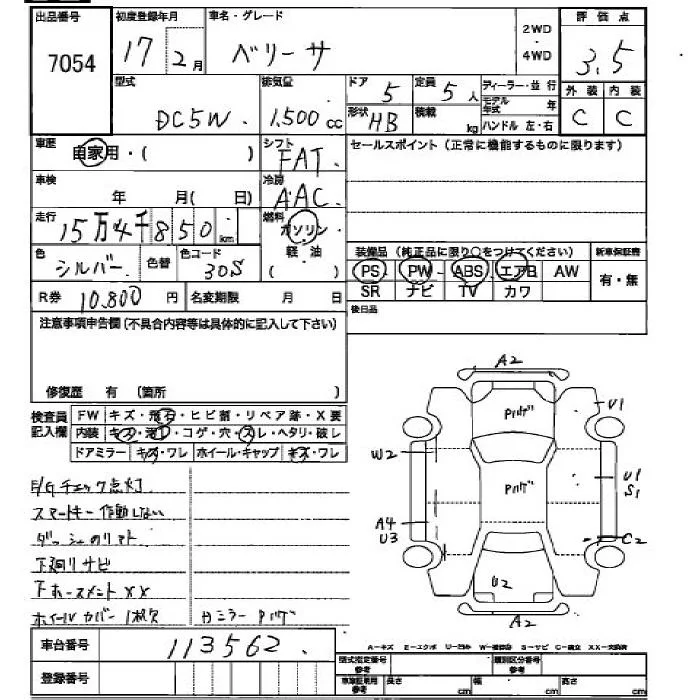 出品番号
初度登録年月
車名・グレード
2WD
評価点
7054
17
2月
ベリーサ
4WD
3.5
型式
排気量
ドア
5
定員
5人
ディーラー・並行
外装
内装
DC5W.
1,500cc
形状
HB
積載
kg
モデル年式
年
ハンドル 左・右
C
C
車歴
自家用・( )
シフト
FAT.
セールスポイント(正常に機能するものに限ります)
車検
年 月( 日)
冷房
AAC.
走行
15万4千850
km
燃料
ガソリン・軽油
( )
装備品(純正品に限り〇をつけてください)
新車保証書
色
シルバー.
色替
色コード
30S
PS
PW
ABS
エアB
AW
有・無
SR
ナビ
TV
カワ
R券
10,800円
名変期限
月
日
後日品
注意事項申告欄(不具合内容等は具体的に記入して下さい)
修復歴 有(箇所 )
検査員記入欄
FW
キズ・飛石・ヒビ割・リペア跡・X要
内装
コゲ・穴・スレ・ヘタリ・破レ
ドアミラー
キズ・ワレ
ホイール・キャップ
キズ・ワレ
E/Gチェック点灯
スマートキー作動しない
下廻りサビ
下ホースメントXX
ホイールカバー1枚欠
カミラーPハゲ
A2
Pハゲ
U1
W2
Pハゲ
U1
S1
A4
U3
C2
U2
A2
車台番号
113562.
A−キズ E−エクボ U−凹み S−サビ XX−交換済
登録番号
型式指定番号
参考
類別区分番号
参考
長さ
cm
幅
cm
高さ
cm